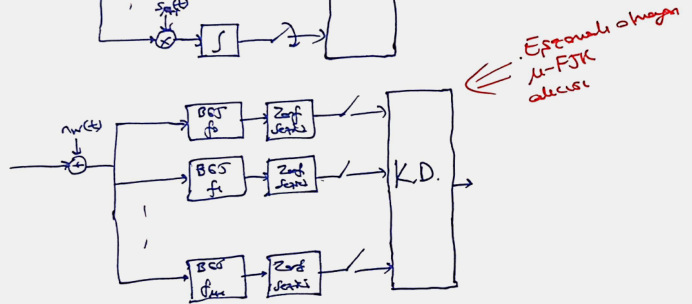 ∫
Eşzamanlı olmayan
M-FSK
alıcısı
n_w(t)
BGS
f0
Zarf
Sezici
BGS
f1
Zarf
Sezici
K.D.
BGS
Zarf
Sezici